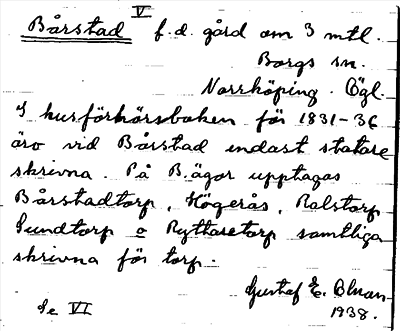 V
Bårstad f.d. gård om 3 mtl.
Borgs sn.
Norrköping. Ögl.
I husförhörsboken för 1831-36
äro vid Bårstad endast statare
skrivna. På B. ägor upptagas
Bårstadtorp, Högerås, Ralstorp
Sundtorp o Ryttaretorp samtliga
skrivna för torp.
Gustaf E.
1938.
Se VI